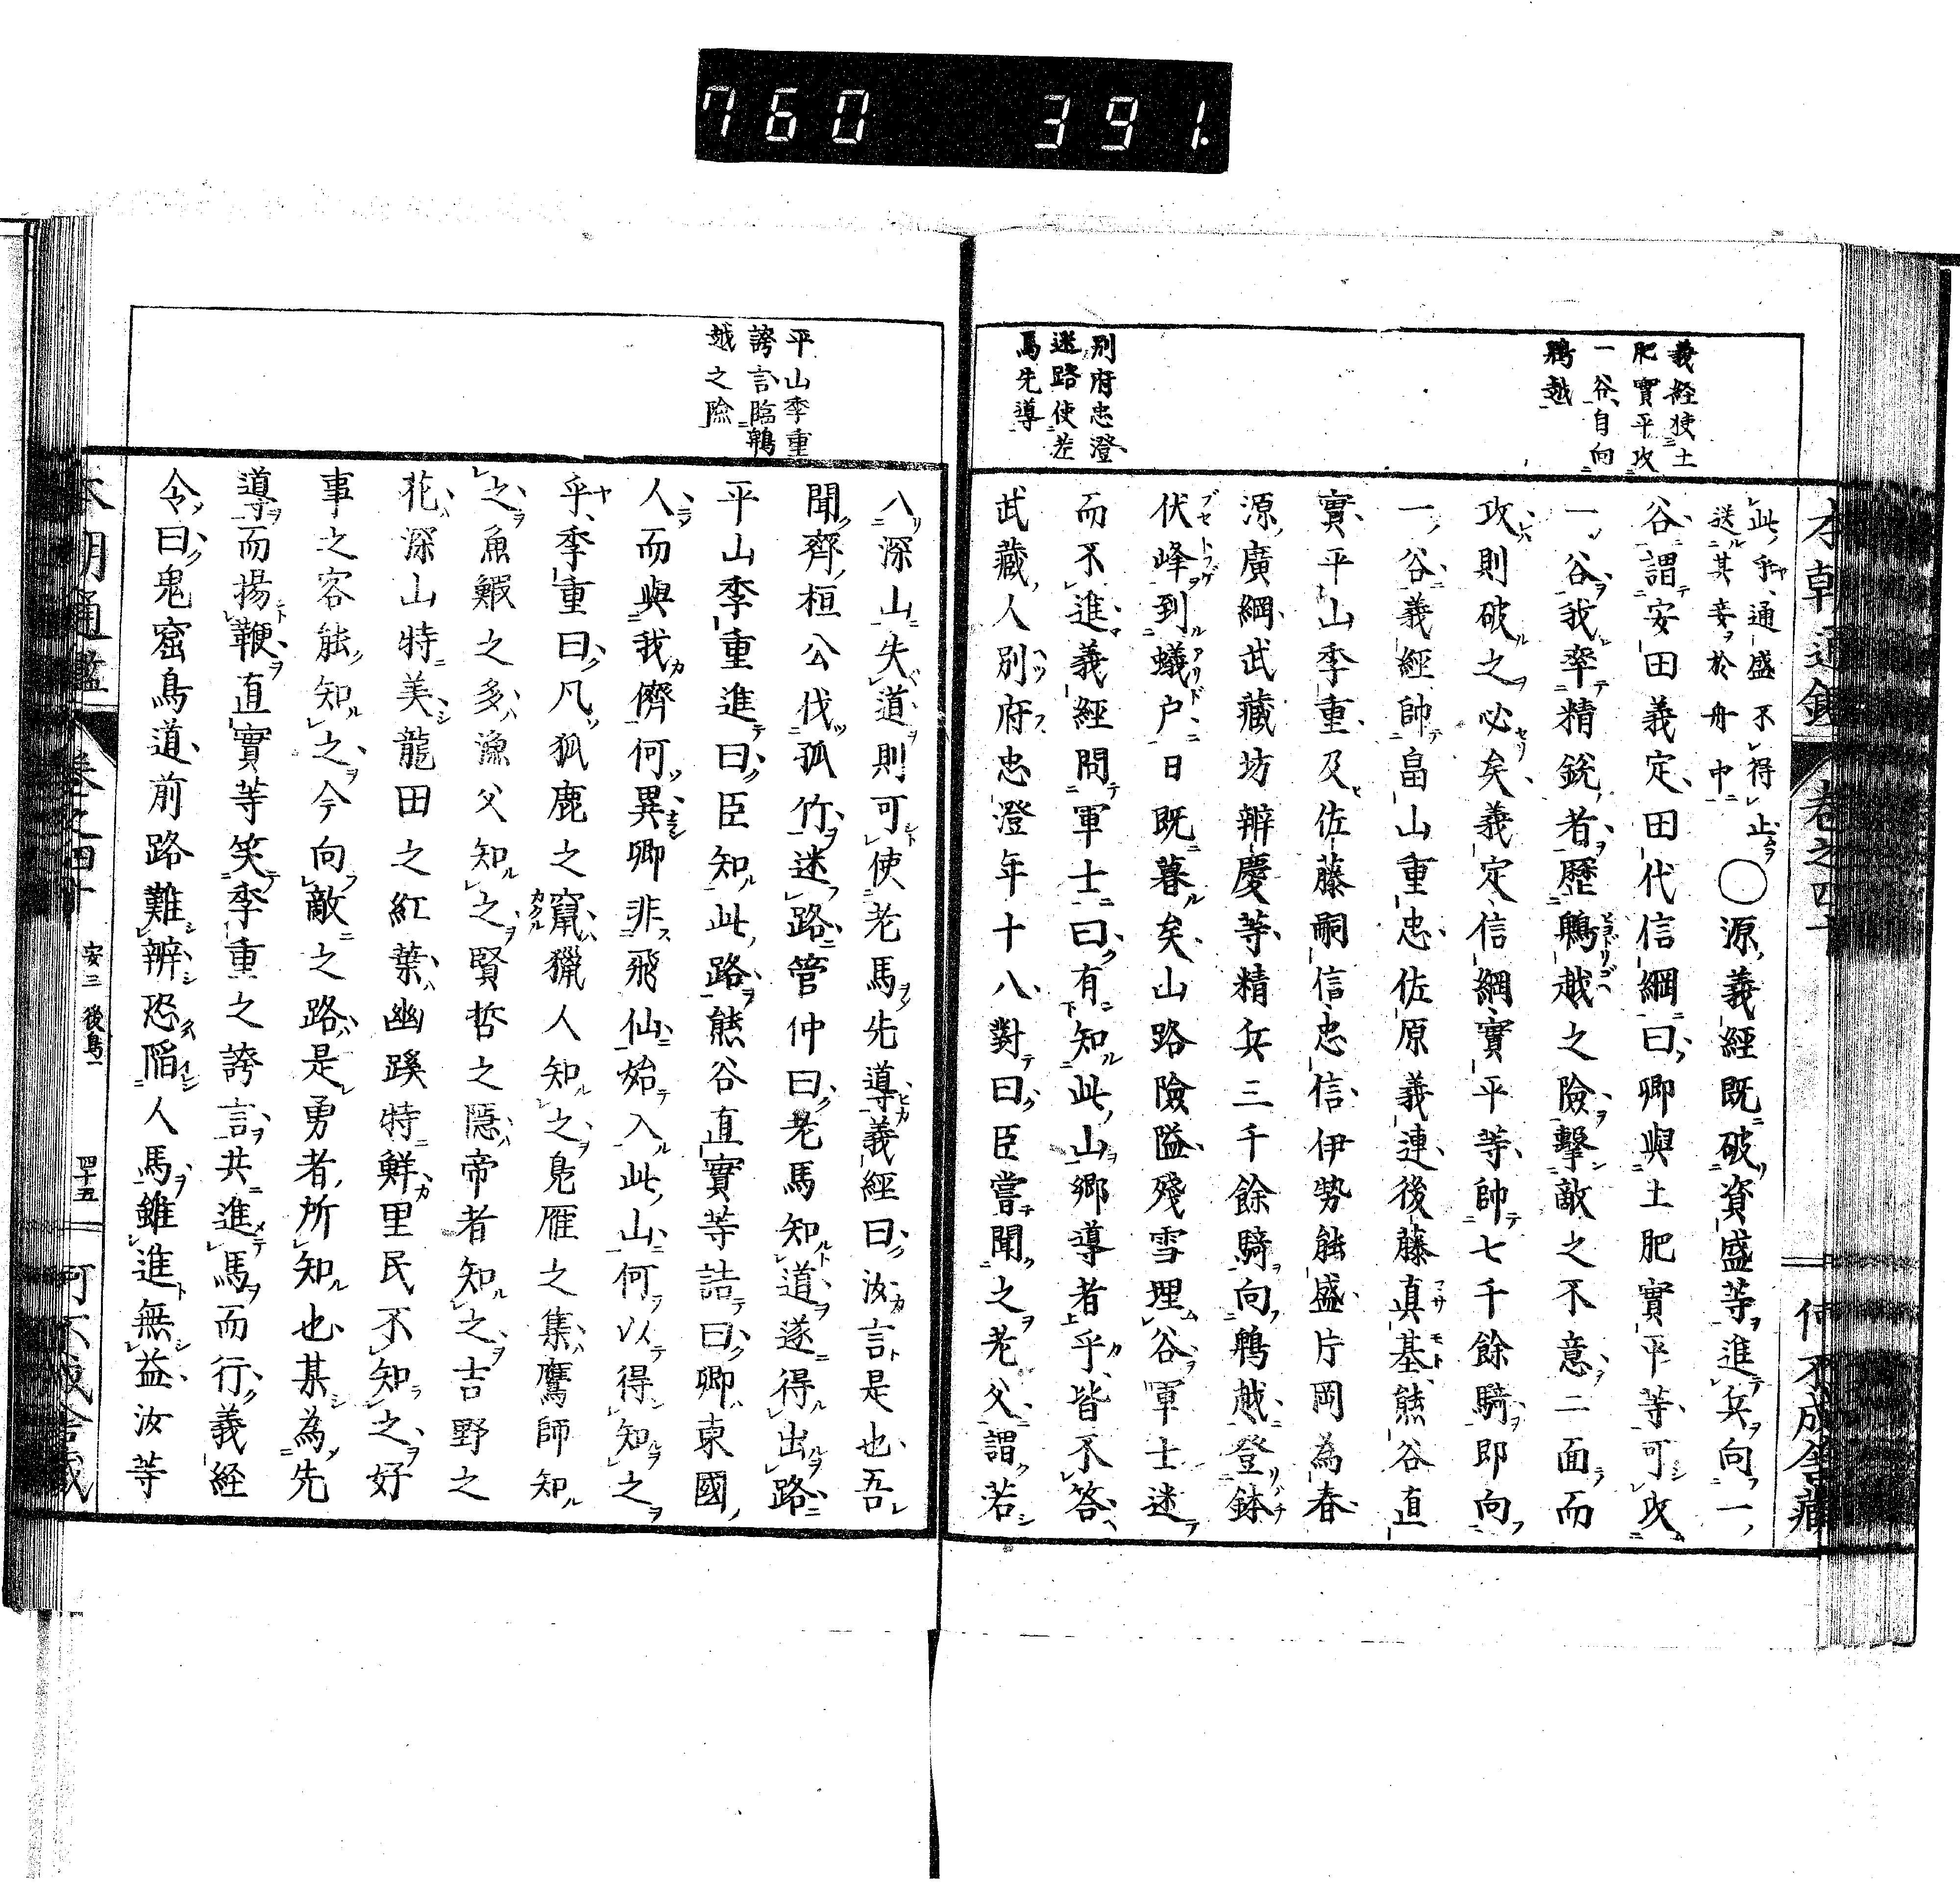 760 391.
本朝通鑑 卷之四十 何不成舎藏
義經使土
肥實平攻
一谷自向
鵯越
別府忠澄
迷路使老
馬先導
此乎通盛不得止
送其妾於舟中
○源義經既破資盛等進兵向一
谷謂安田義定田代信綱曰卿與土肥實平等可攻
一谷我率精銳者歷鵯越之險擊敵之不意二面而
攻則破之必矣義定信綱實平等帥七千餘騎即向
一谷義經帥畠山重忠佐原義連後藤真基熊谷直
實平山季重及佐藤嗣信忠信伊勢能盛片岡為春
源廣綱武藏坊辨慶等精兵三千餘騎向鵯越登鉢
伏峰到蟻戶日既暮矣山路險隘殘雪埋谷軍士迷
而不進義經問軍士曰有知此山鄉導者乎皆不答
武藏人別府忠澄年十八對曰臣嘗聞之老父謂若
平山季重
誇言臨鵯
越之險
入深山失道則可使老馬先導義經曰汝言是也吾
聞齊桓公伐孤竹迷路管仲曰老馬知道遂得出路
平山季重進曰臣知此路熊谷直實等詰曰卿東國
人而與我儕何異卿非飛仙始入此山何以得知之
乎季重曰凡狐鹿之竄獵人知之鳬雁之集鷹師知
之魚鰕之多漁父知之賢哲之隱帝者知之吉野之
花深山特美龍田之紅葉幽蹊特鮮里民不知之好
事之客能知之今向敵之路是勇者所知也某為先
導而揚鞭直實等笑季重之誇言共進馬而行義經
令曰鬼窟鳥道前路難辨恐陷人馬雖進無益汝等
本朝通鑑 卷之四十 安三 後鳥一 四十五 何不成舎藏